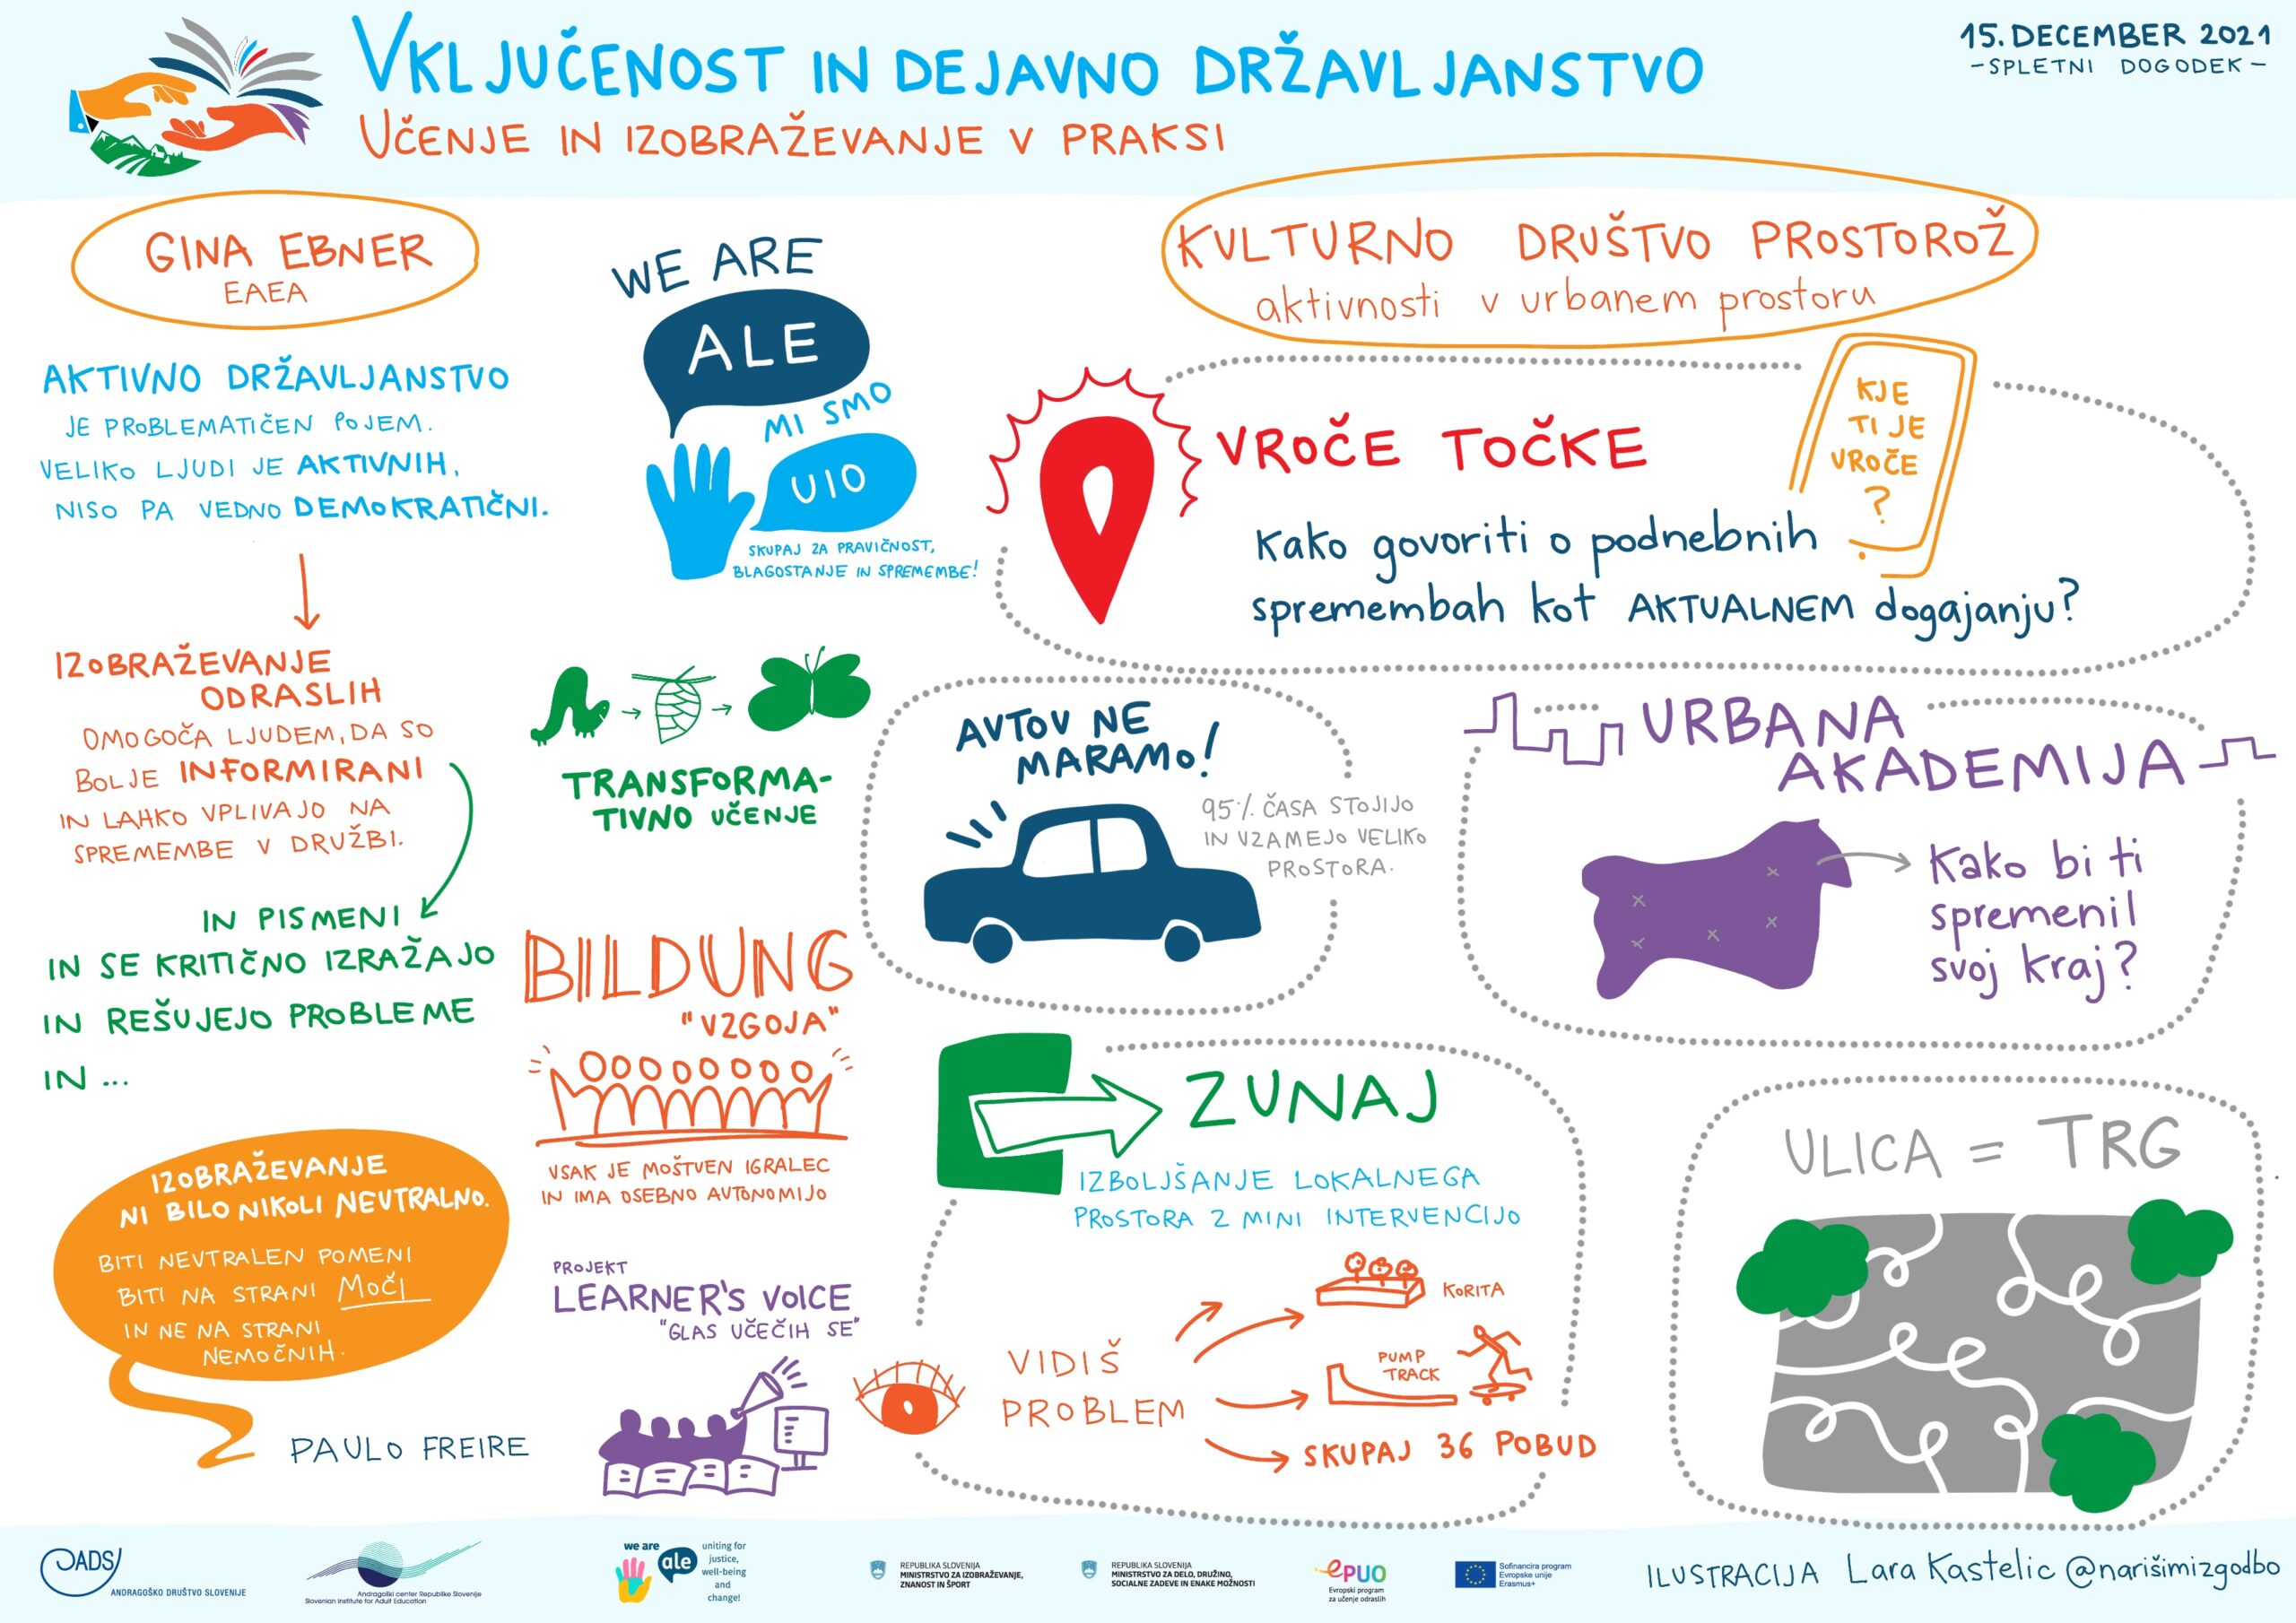 VKLJUČENOST IN DEJAVNO DRŽAVLJANSTVO
UČENJE IN IZOBRAŽEVANJE V PRAKSI
15. DECEMBER 2021
- SPLETNI DOGODEK -
GINA EBNER
EAEA
AKTIVNO DRŽAVLJANSTVO
JE PROBLEMATIČEN POJEM.
VELIKO LJUDI JE AKTIVNIH,
NISO PA VEDNO DEMOKRATIČNI.
IZOBRAŽEVANJE
ODRASLIH
OMOGOČA LJUDEM, DA SO
BOLJE INFORMIRANI
IN LAHKO VPLIVAJO NA
SPREMEMBE V DRUŽBI.
IN PISMENI
IN SE KRITIČNO IZRAŽAJO
IN REŠUJEJO PROBLEME
IN ...
IZOBRAŽEVANJE
NI BILO NIKOLI NEVTRALNO.
BITI NEVTRALEN POMENI
BITI NA STRANI MOČI
IN NE NA STRANI
NEMOČNIH.
PAULO FREIRE
WE ARE
ALE
MI SMO
UIO
SKUPAJ ZA PRAVIČNOST,
BLAGOSTANJE IN SPREMEMBE!
TRANSFORMA-
TIVNO UČENJE
BILDUNG
"VZGOJA"
VSAK JE MOŠTVEN IGRALEC
IN IMA OSEBNO AVTONOMIJO
PROJEKT
LEARNER'S VOICE
"GLAS UČEČIH SE"
KULTURNO DRUŠTVO PROSTOROŽ
aktivnosti v urbanem prostoru
VROČE TOČKE
KJE
TI JE
VROČE
?
Kako govoriti o podnebnih
spremembah kot AKTUALNEM dogajanju?
AVTOV NE
MARAMO!
95% ČASA STOJIJO
IN VZAMEJO VELIKO
PROSTORA.
URBANA
AKADEMIJA
Kako bi ti
spremenil
svoj kraj?
ZUNAJ
IZBOLJŠANJE LOKALNEGA
PROSTORA Z MINI INTERVENCIJO
VIDIŠ
PROBLEM
KORITA
PUMP
TRACK
SKUPAJ 36 POBUD
ULICA = TRG
ADS
ANDRAGOŠKO DRUŠTVO SLOVENIJE
Andragoški center Republike Slovenije
Slovenian Institute for Adult Education
we are
ale
uniting for
justice,
well-being
and
change!
REPUBLIKA SLOVENIJA
MINISTRSTVO ZA IZOBRAŽEVANJE,
ZNANOST IN ŠPORT
REPUBLIKA SLOVENIJA
MINISTRSTVO ZA DELO, DRUŽINO,
SOCIALNE ZADEVE IN ENAKE MOŽNOSTI
ePUO
Evropski program
za učenje odraslih
Sofinancira program
Evropske unije
Erasmus+
ILUSTRACIJA Lara Kastelic @narišimizgodbo